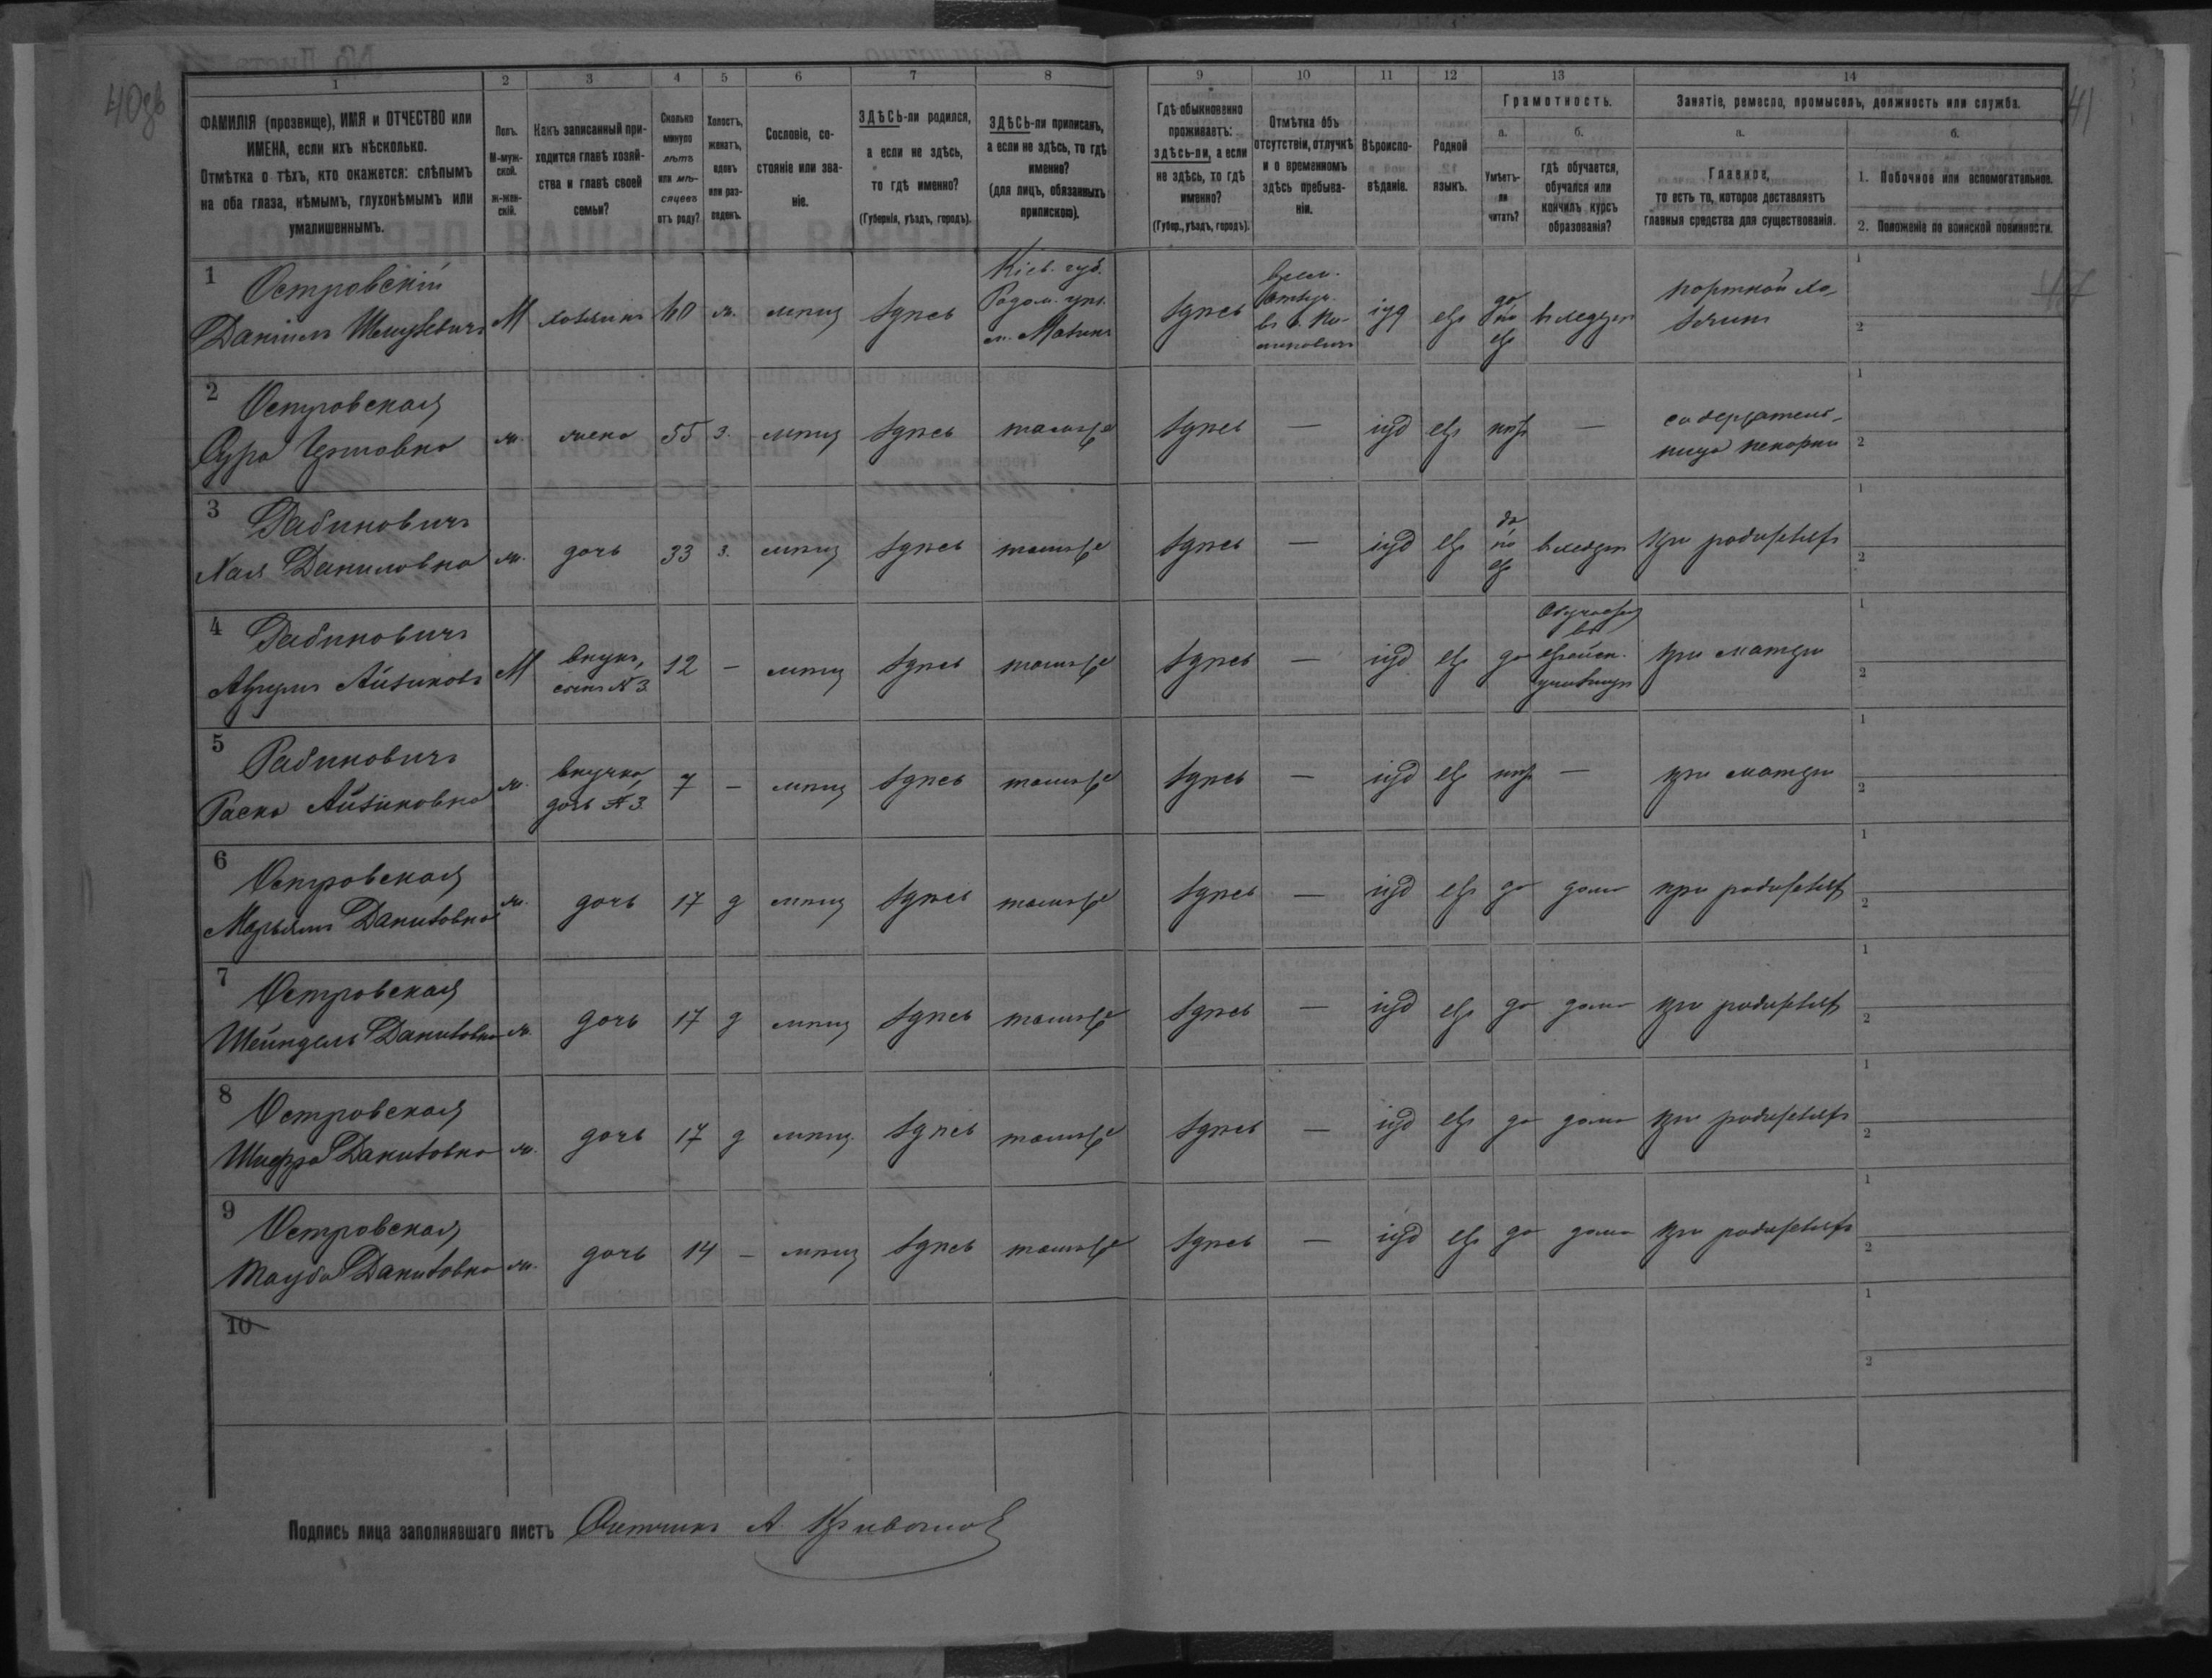 40об
41
1
2
3
4
5
6
7
8
9
10
11
12
13
14
ФАМИЛІЯ (прозвище), ИМЯ и ОТЧЕСТВО или
ИМЕНА, если ихъ нѣсколько.
Отмѣтка о тѣхъ, кто окажется: слѣпымъ
на оба глаза, нѣмымъ, глухонѣмымъ или
умалишеннымъ.
Полъ.
М-муж-
ской.
Ж-жен-
скій.
Какъ записанный при-
ходится главѣ хозяй-
ства и главѣ своей
семьи?
Сколько
минуло
лѣтъ
или мѣ-
сяцевъ
отъ роду?
Холостъ,
женатъ,
вдовъ
или раз-
веденъ.
Сословіе, со-
стояніе или зва-
ніе.
ЗДѢСЬ-ли родился,
а если не здѣсь,
то гдѣ именно?
(Губернія, уѣздъ, городъ).
ЗДѢСЬ-ли приписанъ,
а если не здѣсь, то гдѣ
именно?
(для лицъ, обязанныхъ
припискою).
Гдѣ обыкновенно
проживаетъ:
здѣсь-ли, а если
не здѣсь, то гдѣ
именно?
(Губер., уѣздъ, городъ).
Отмѣтка объ
отсутствіи, отлучкѣ
и о временномъ
здѣсь пребыва-
ніи.
Вѣроиспо-
вѣданіе.
Родной
языкъ.
Грамотность.
а.
Умѣетъ-
ли
читать?
б.
гдѣ обучается,
обучался или
кончилъ курсъ
образованія?
Занятіе, ремесло, промыселъ, должность или служба.
а.
Главное,
то есть то, которое доставляетъ
главныя средства для существованія.
б.
1. Побочное или вспомогательное.
2. Положеніе по воинской повинности.
1 Островскій
Даніилъ
М хозяинъ 60 ж. мѣщ здѣсь
Кіев. губ.
Радом. уѣз.
м.
здѣсь
врем.
іуд евр
да
по
евр
въ хедерѣ
портной хо
зяинъ
1
2
2 Островская
Сура
ж. жена 55 з. мѣщ здѣсь тамъ же здѣсь — іуд евр нѣтъ —
содержатель
ница пекарни
1
2
3 Рабиновичъ
Хая Даниловна
ж. дочь 33 з. мѣщ здѣсь тамъ же здѣсь — іуд евр
да
по
евр
въ хедерѣ при родителяхъ
1
2
4 Рабиновичъ
Айзиковъ
М
внукъ,
сынъ №3
12 — мѣщ здѣсь тамъ же здѣсь — іуд евр да
Обучается
въ
еврейск.
училищѣ
при матери
1
2
5 Рабиновичъ
Раска Айзиковна
ж.
внучка,
дочь №3
7 — мѣщ здѣсь тамъ же здѣсь — іуд евр нѣтъ — при матери
1
2
6 Островская
Марьямъ Даниловна
ж. дочь 17 д мѣщ здѣсь тамъ же здѣсь — іуд евр да дома при родителяхъ
1
2
7 Островская
Шейндель Даниловна
ж. дочь 17 д мѣщ здѣсь тамъ же здѣсь — іуд евр да дома при родителяхъ
1
2
8 Островская
Шифра Даниловна
ж. дочь 17 д мѣщ. здѣсь тамъ же здѣсь — іуд евр да дома при родителяхъ
1
2
9 Островская
Тауба Даниловна
ж. дочь 14 — мѣщ здѣсь тамъ же здѣсь — іуд евр да дома при родителяхъ
1
2
10
1
2
Подпись лица заполнявшаго листъ Счетчикъ А.